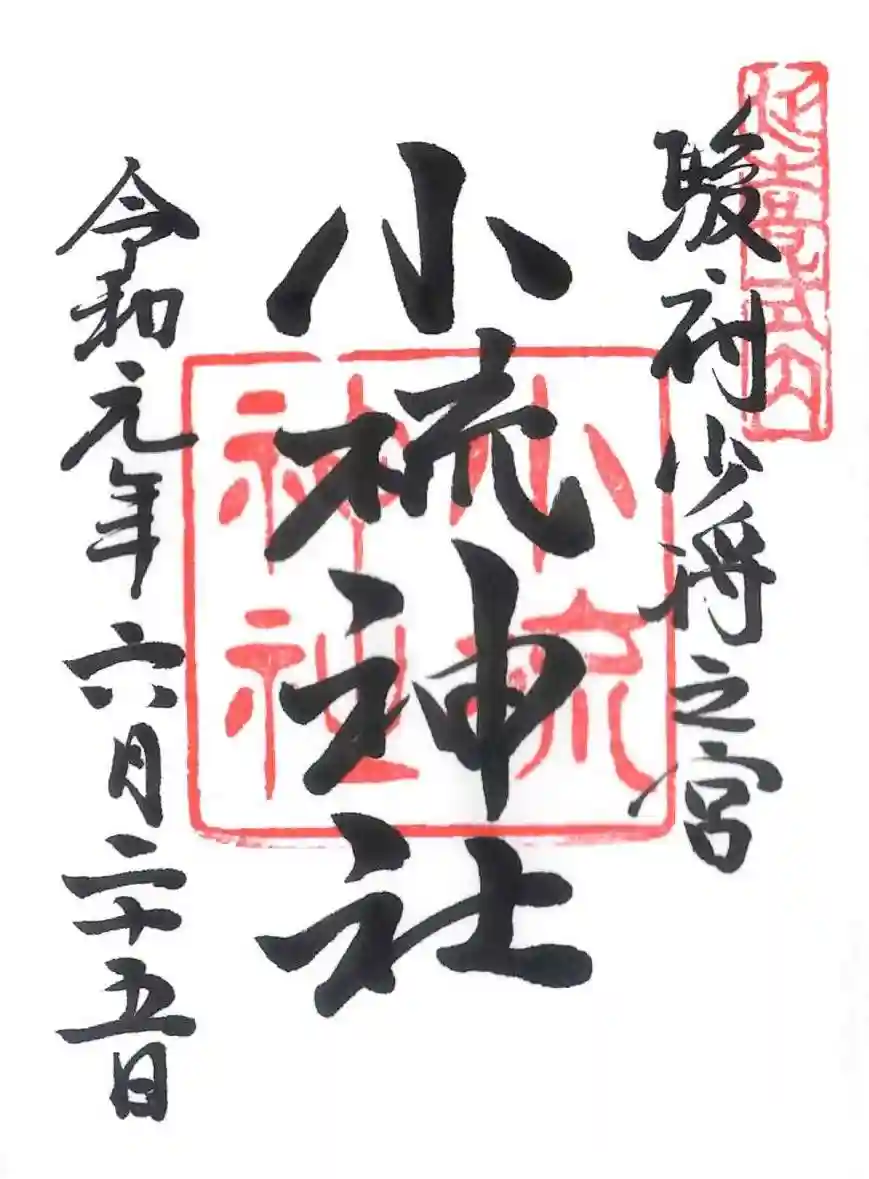 駿府少将之宮
小梳神社
令和元年六月二十五日
延喜式内
小梳
神社